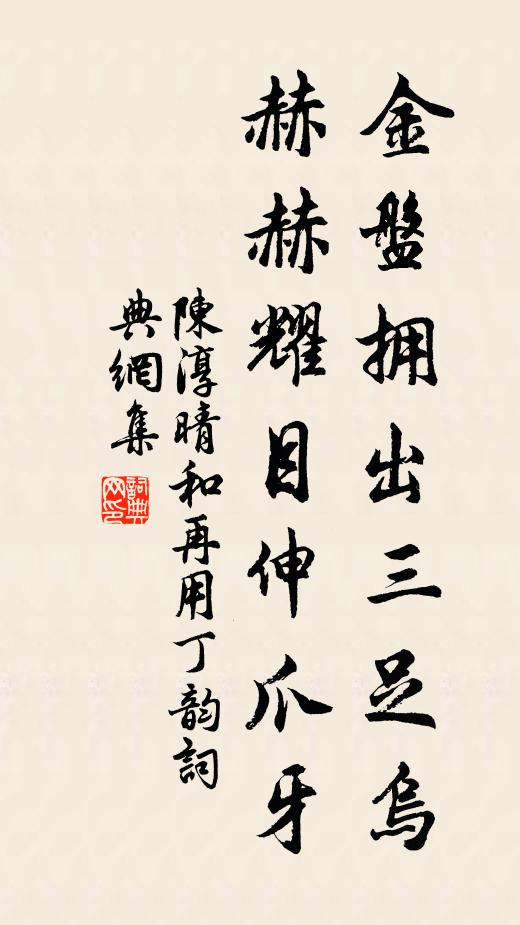 金盤拥出三足烏
赫赫耀目伸爪牙
陳淳晴和再用丁韵詞
典網集
詞典网印